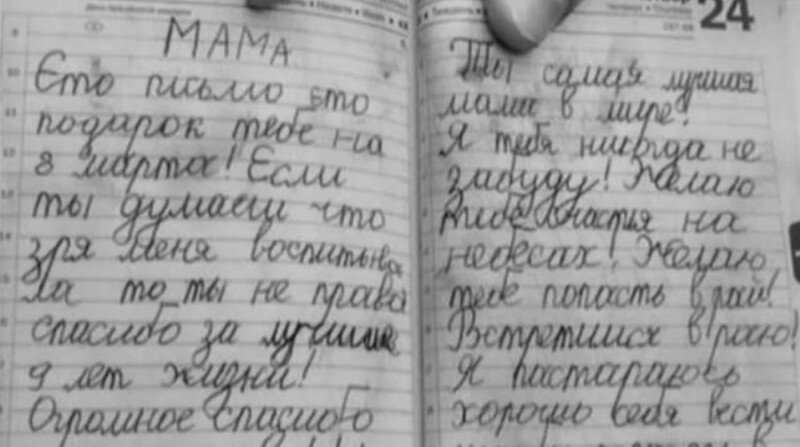 МАМА
Єто письмо ето
подарок тебе на
8 марта! Если
ты думаеш что
зря меня воспитыва
ла то ты не права
спасибо за лучшие
9 лет жизни!
Огромное спасибо
24
Ты самая лучшая
мама в мире!
Я тебя никогда не
забуду! Желаю
тебе счастия на
небесах! Желаю
тебе попасть в рай!
Встретимся в раю!
Я пастараюсь
хорошо себя вести